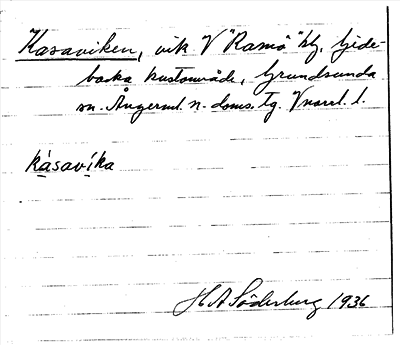 Kasaviken, vik V "Ramö" hg, Gide-
backa kustområde, Grundsunda
sn. Ångerml. n. doms. tg. Vnorrl. l.
kàsavíka
H A Söderberg 1936